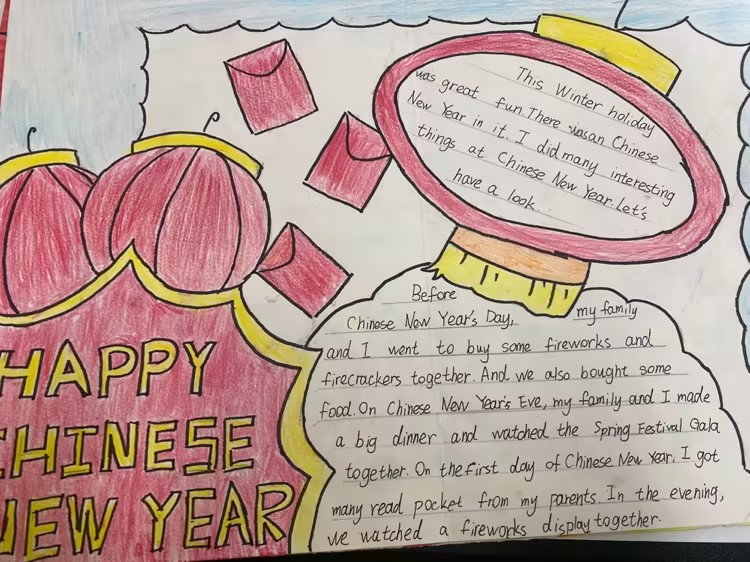 This Winter holiday
was great fun. There was an Chinese
New Year in it. I did many interesting
things at Chinese New Year. Let's
have a look.
Before
Chinese New Year's Day, my family
and I went to buy some fireworks and
firecrackers together. And we also bought some
food. On Chinese New Year's Eve, my family and I made
a big dinner and watched the Spring Festival Gala
together. On the first day of Chinese New Year, I got
many read pocket from my parents. In the evening,
we watched a fireworks display together.
HAPPY
CHINESE
NEW YEAR